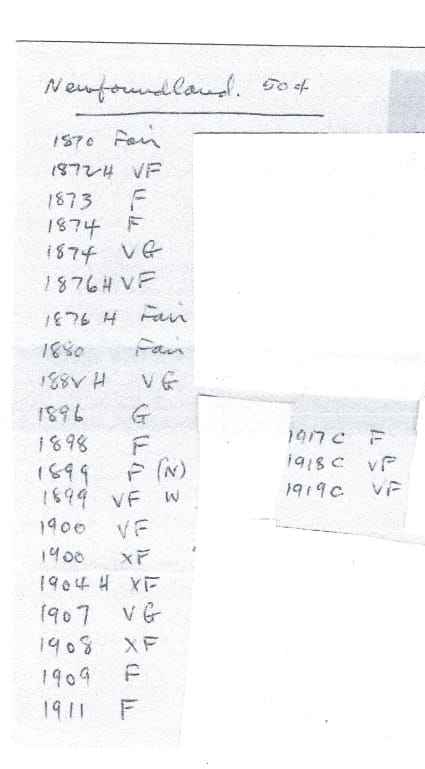 Newfoundland. 50¢
1870 Fair
1872H VF
1873 F
1874 F
1874 VG
1876H VF
1876 H Fair
1880 Fair
1882 H VG
1896 G
1898 F
1899 F (N)
1899 VF W
1900 VF
1900 XF
1904 H XF
1907 VG
1908 XF
1909 F
1911 F
1917 C F
1918 C VF
1919 C VF